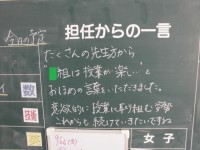 担任からの一言
今日の予定
たくさんの先生方から
"組は授業が楽し…"と
おほめの言葉をいただきました。
意欲的に授業に取り組む姿勢
これからも続けていきたいですね
数
女子